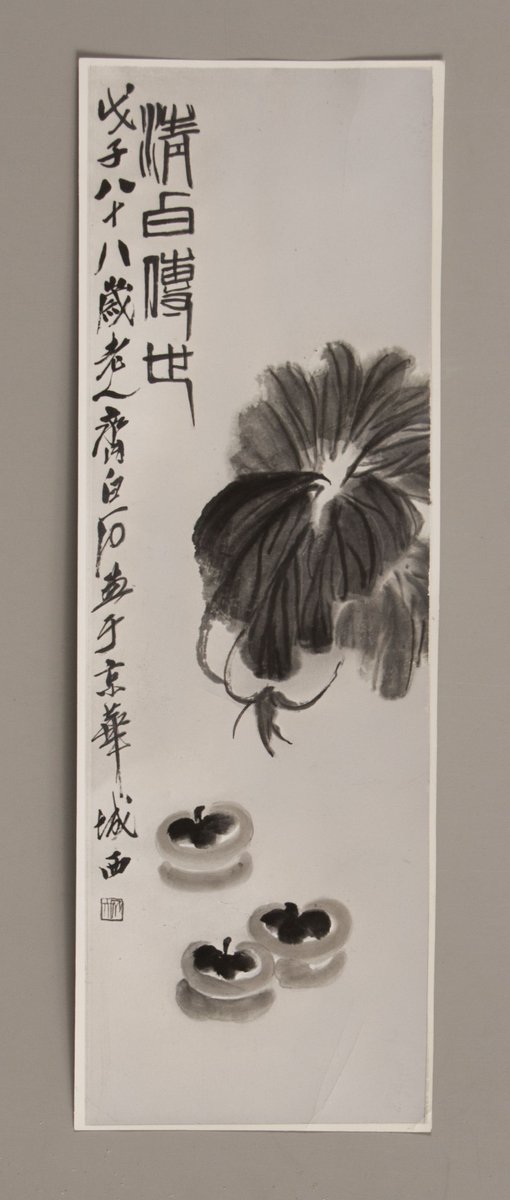 清白傳世
戊子八十八歲老人齊白石畫于京華城西